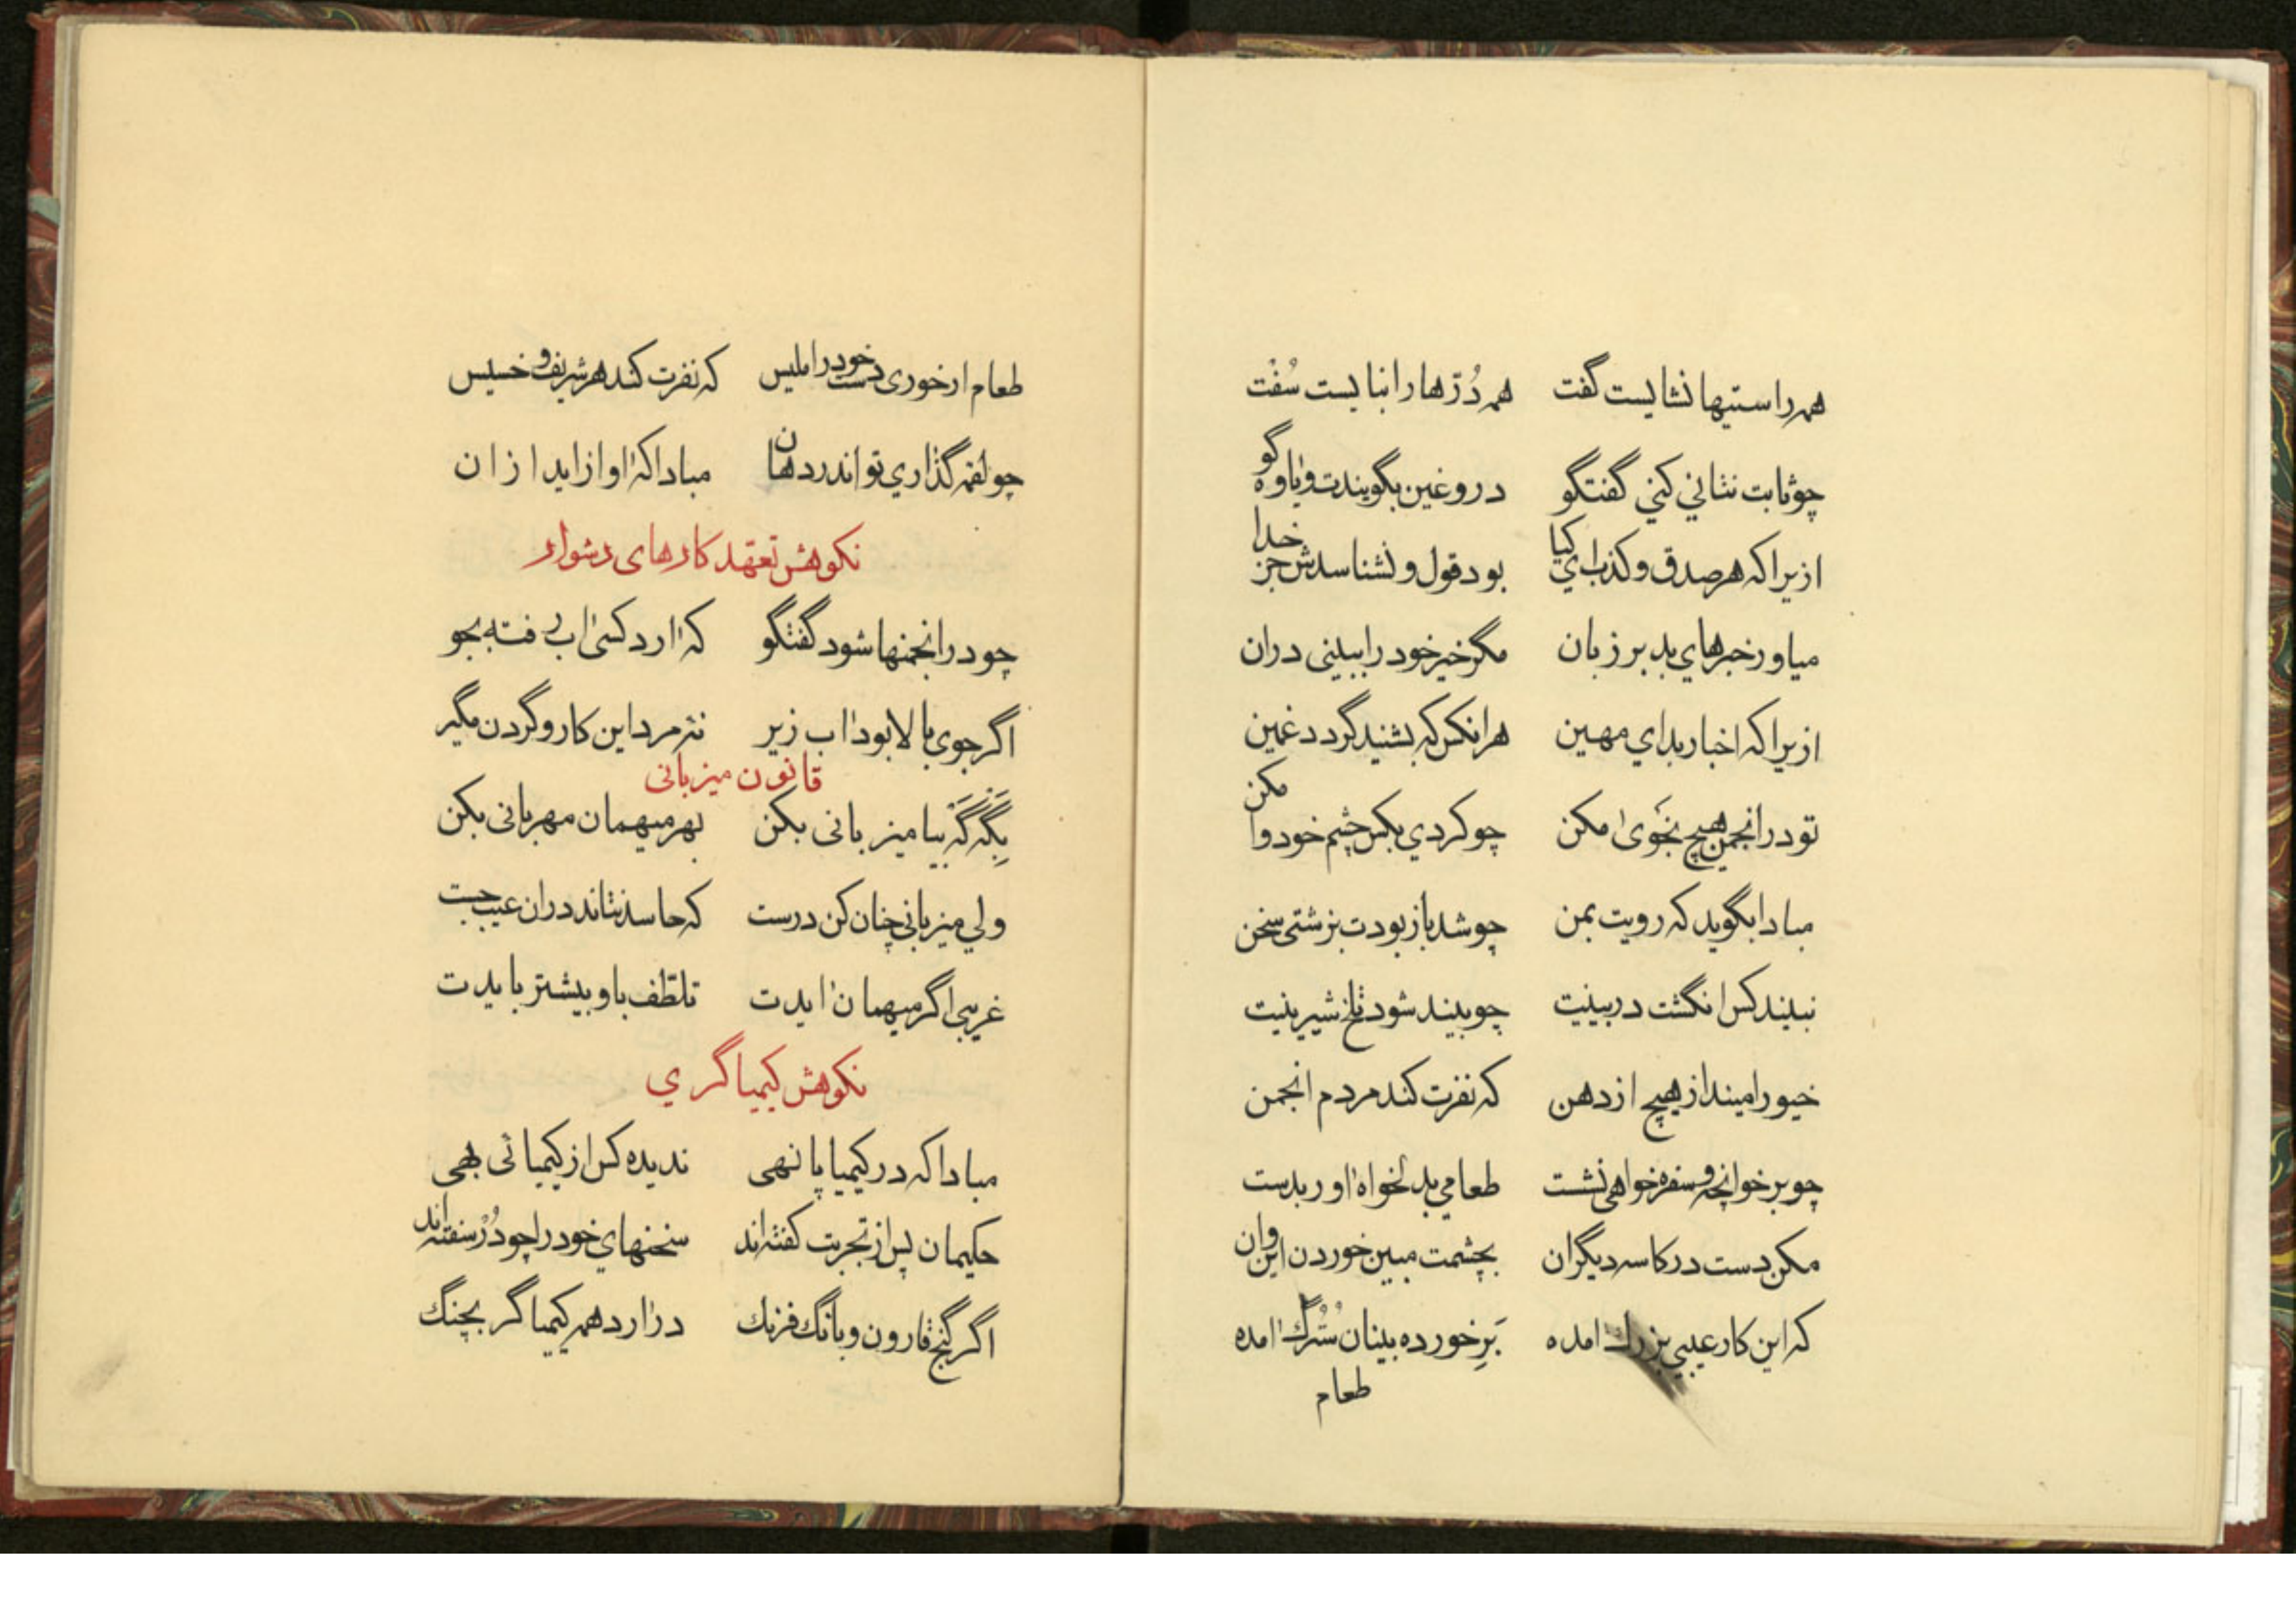 همه راستیها نشایست گفت همه دُرّها را نبایست سُفْت
چو ثابت نتاني کني گفتگو دروغین بگویندت و یاوه گو
ازیرا که هر صدق و کذب اي کیا بود قول و نشناسدش جز خدا
میاور خبرهاي بد بر زبان مگر خیر خود را ببینی دران
ازیرا که اخبار بد اي مهین هر انکس که بشنید گردد غمین
تو در انجمن هیچ نجَویٰ مکن چو کردي بکس چشم خود وا مکن
مبادا بگوید که رویت بمن چو شد باز بودت بزشتی سخن
نبیند کس انگشت در بینیت چو بیند شود تلخ شیرینیت
خیو را مینداز هیچ از دهن که نفرت کند مردم انجمن
چو بر خوانچه و سفره خواهی نشست طعامي بدلخواه اور بدست
مکن دست در کاسه دیگران بچشمت مبین خوردن این و ان
که این کار عیبي بزرك امده بَرِ خورده بینان سُتُرگ امده
طعام
طعام ار خوری دست خود را ملیس که نفرت کند هر شریف و خسیس
چو لقمه گذاري تو اندر دهان مبادا که اواز اید ازان
نکوهش تعهد کارهای دشوار
چو در انجمنها شود گفتگو که ارد کسی اب رفته بجو
اگر جوی بالا بود اب زیر نهٔ مرد این کار و گردن مگیر
قانون میزبانی
بِگَه گَه بیا میزبانی بکن بهر میهمان مهربانی بکن
ولي میزباني چنان کن درست که حاسد نتاند دران عیب جست
غریبی اگر میهمان ایدت تلطّف باو بیشتر بایدت
نکوهش کیمیاگري
مبادا که در کیمیا پا نهی ندیده کس از کیمیائی بهی
حکیمان پس از تجربت گفته‌اند سخنهاي خود را چو دُرْ سفته‌اند
اگر گنج قارون و بانگ فرنك درارد همه کیمیاگر بچنگ